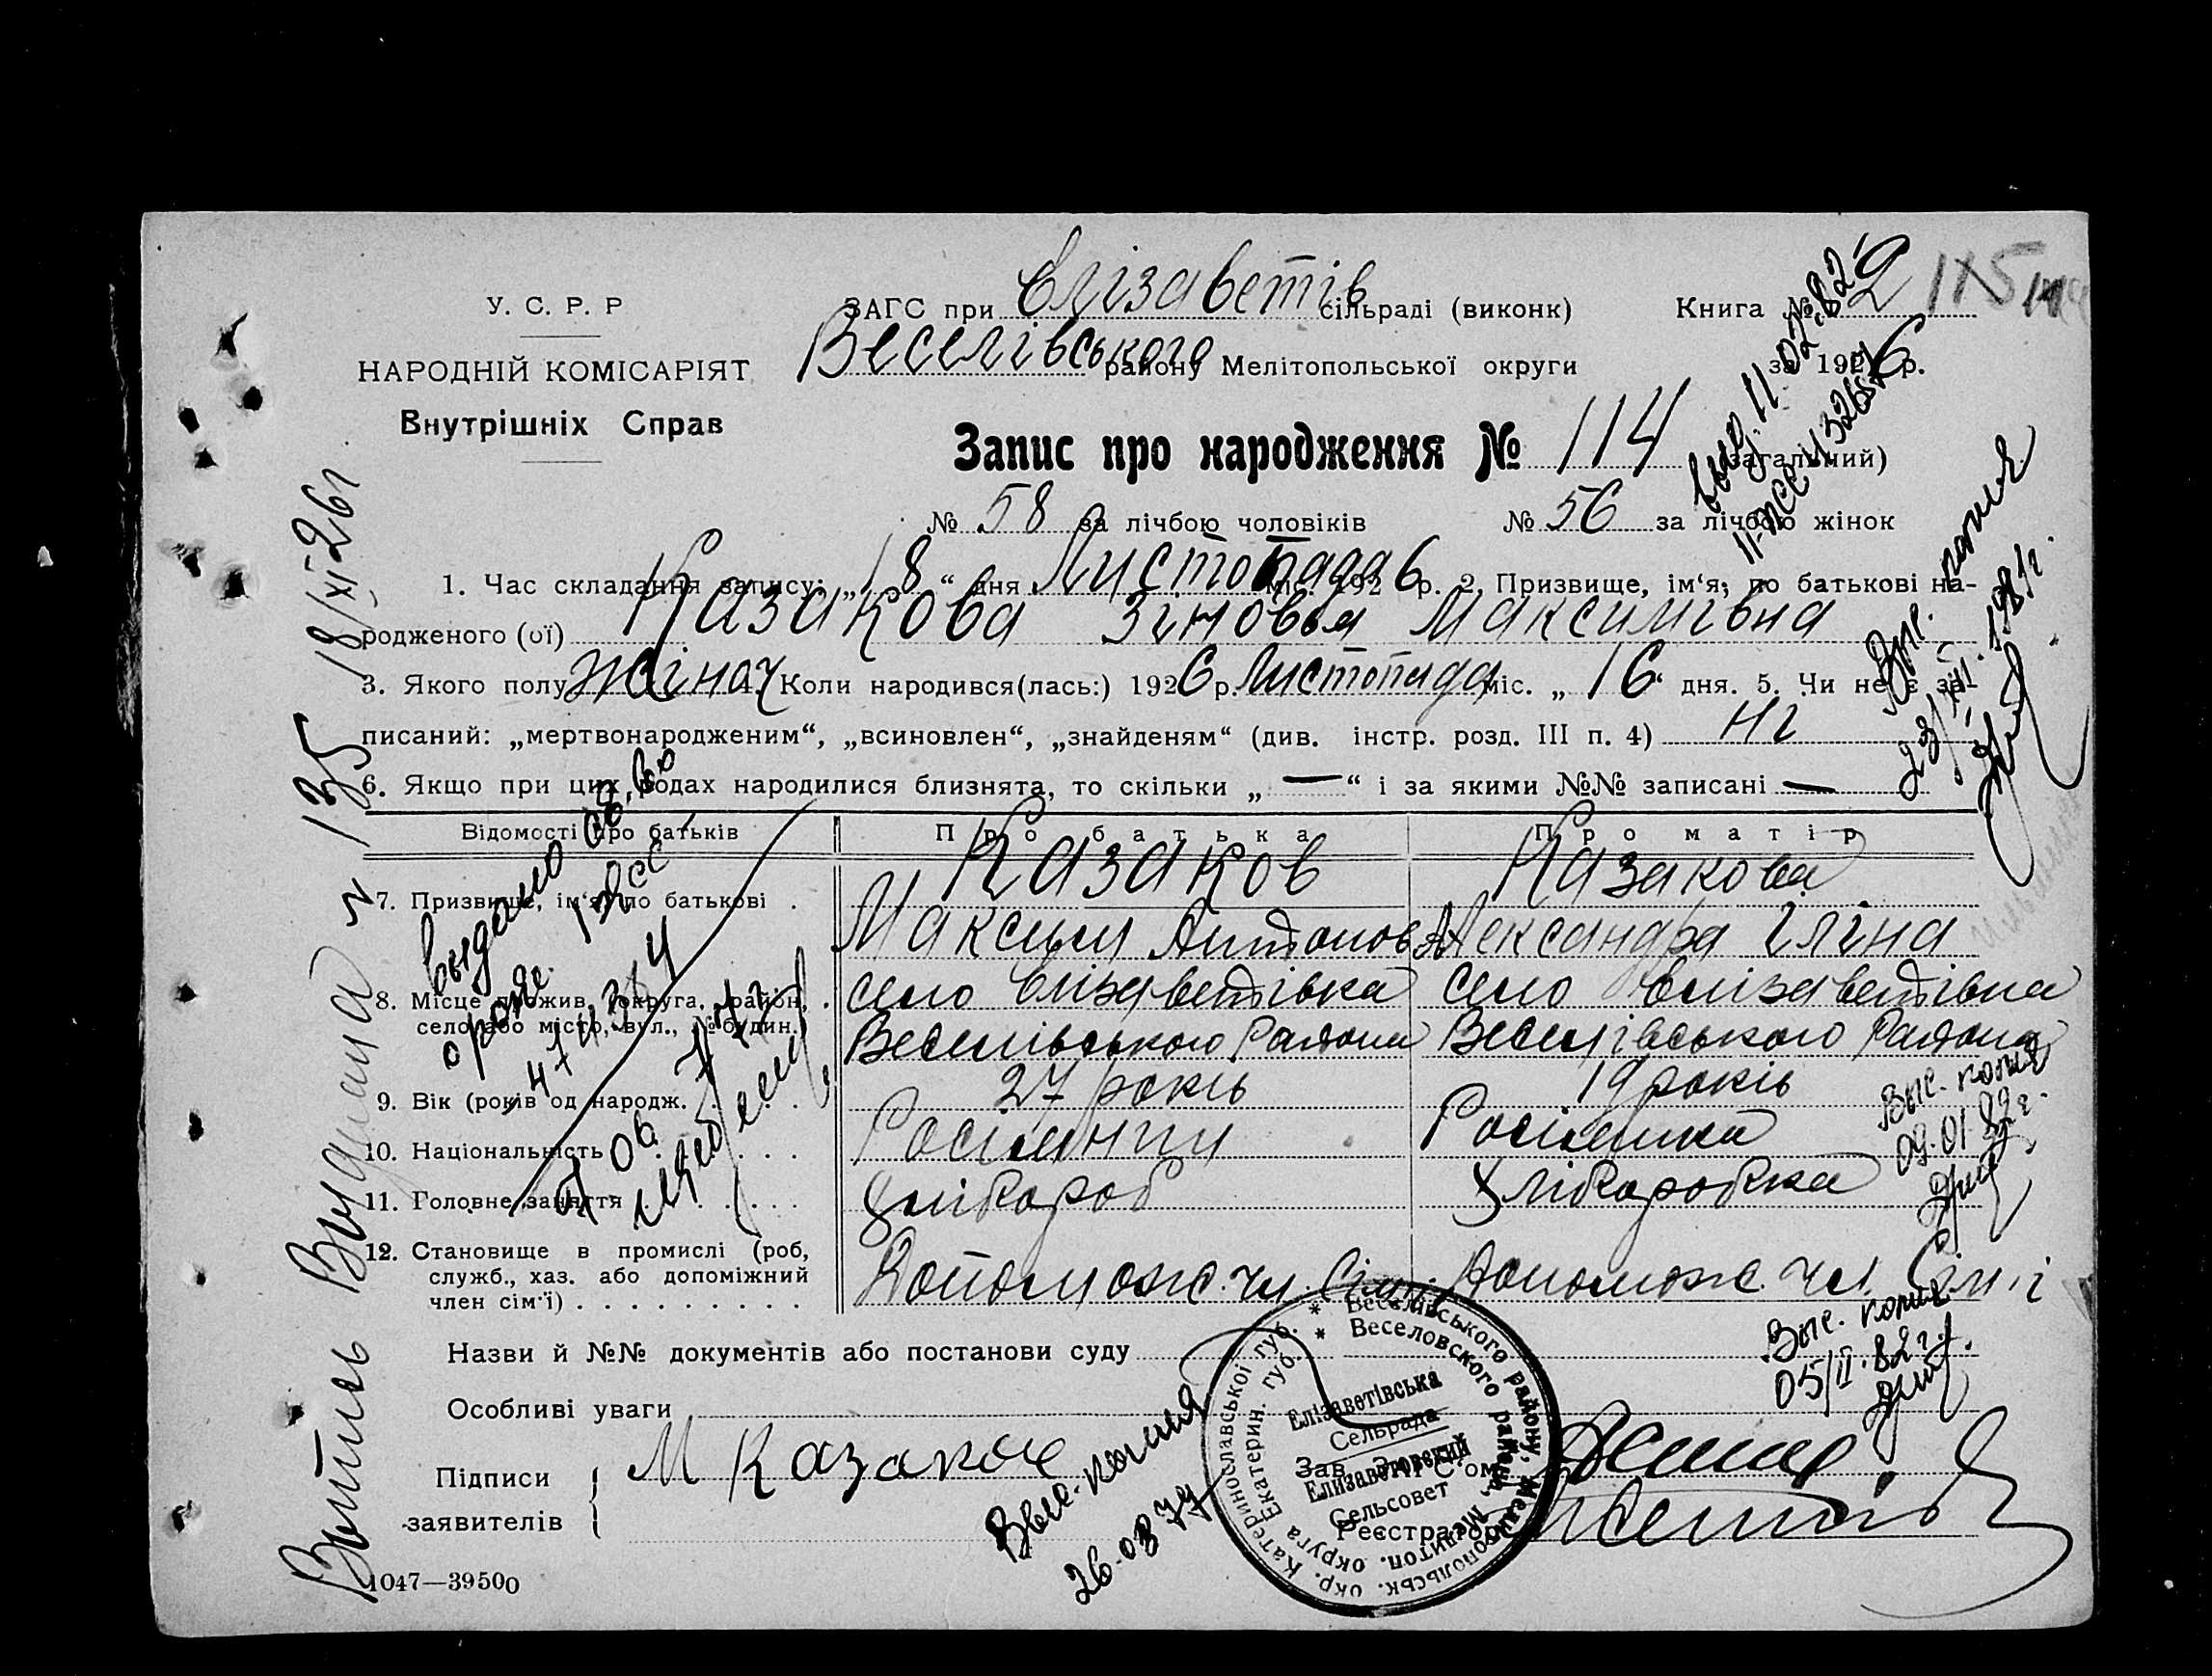 У. С. Р. Р
НАРОДНІЙ КОМІСАРІЯТ
Внутрішніх Справ
ЗАГС при Єлізаветів сільраді (виконк)
Веселівського району Мелітопольської округи
Книга № 2
115
за 1926 р.
Запис про народження № 114 (загальний)
№ 58 за лічбою чоловіків № 56 за лічбою жінок
1. Час складання запису: „18“ дня Листопада міс. 1926 р. 2. Призвище, ім‘я, по батькові на-
родженого (ої) Казакова Зіновья Максимівна
3. Якого полу жіноч 4. Коли народився(лась:) 1926 р. Листопада міс. „16“ дня. 5. Чи не є за-
писаний: „мертвонародженим“, „всиновлен“, „знайденям“ (див. інстр. розд. III п. 4) ні
6. Якщо при цих родах народилися близнята, то скільки „—“ і за якими №№ записані —
Відомості про батьків Про батька Про матір
7. Призвище, ім‘я, по батькові .
Казаков
Максим Антонов
Казакова
Александра Іліна
8. Місце прожив. (округа, район,
село або місто, вул., № будин.)
село Єлізаветівка
Веселівського Района
село Єлізаветівка
Веселівського Района
9. Вік (років од народж. 27 років 19 років
10. Національність Росіянин Росіянка
11. Головне заняття Хлібороб Хліборобка
12. Становище в промислі (роб,
служб., хаз. або допоміжний
член сім‘ї)
Допомож. чл. Сімі
Допомож. чл. Сімі
Назви й №№ документів або постанови суду
Особливі уваги
Підписи
заявителів
М Казаков
Зав. ЗАГС‘ом
Реєстратор
1047—39500
Витпсь Видана № 135 18/XI 26г
выдано
о рожд.
474314
выд. 11.02.82г
Выс. копия
23/XII.1981г.
Выс. копия
09.01.82г.
Выс. копия
05/II.82г.
Выс. копия
26-03 79
Веселівського району, Мелітопольськ. окр. Катеринославської губ. *
Веселовского района, Мелитоп. округа Екатерин. губ. *
Елізаветівська
Сельрада
Елизаветовский
Сельсовет